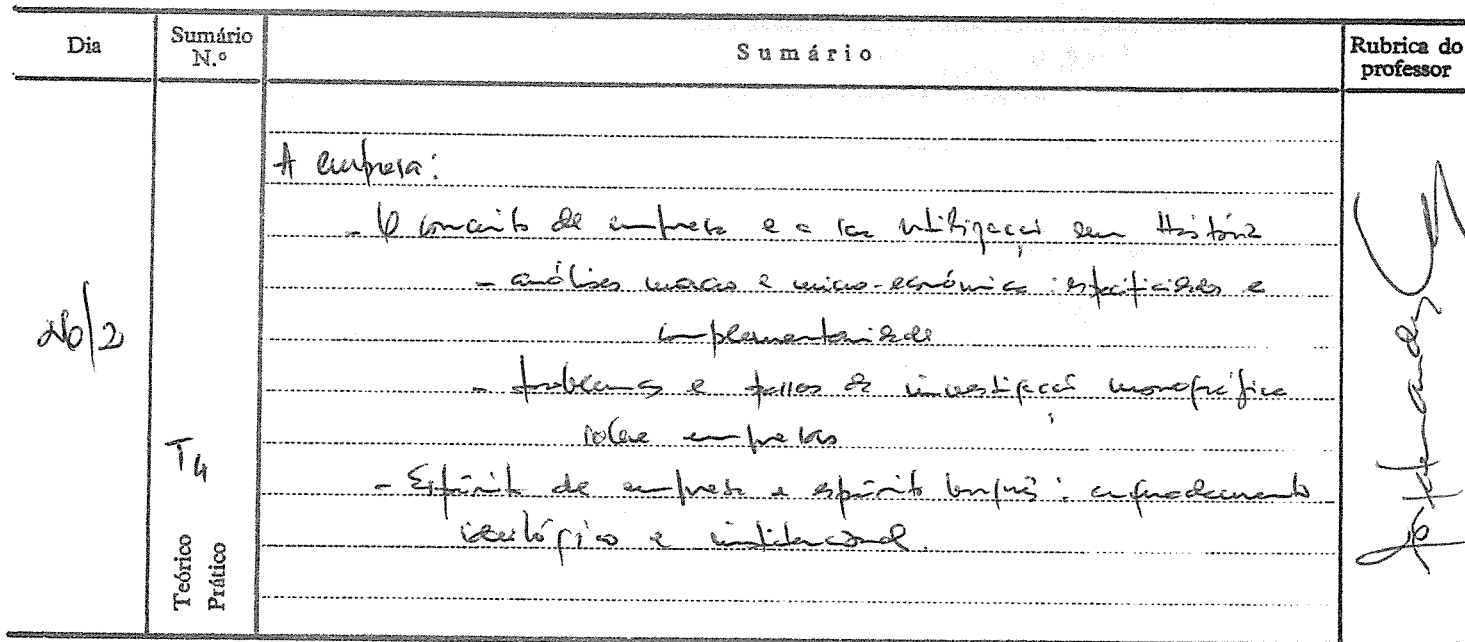 Dia
Sumário N.º
Sumário
Rubrica do professor
A empresa:
- O conceito de empresa e a sua utilização em História
- análises macro e micro-económica: especificidades e
complementaridade
- problemas e de investigação monográfica
sobre empresas
- Espírito de empresa e espírito burguês: enquadramento
ideológico e institucional.
/2
T4
Teórico
Prático